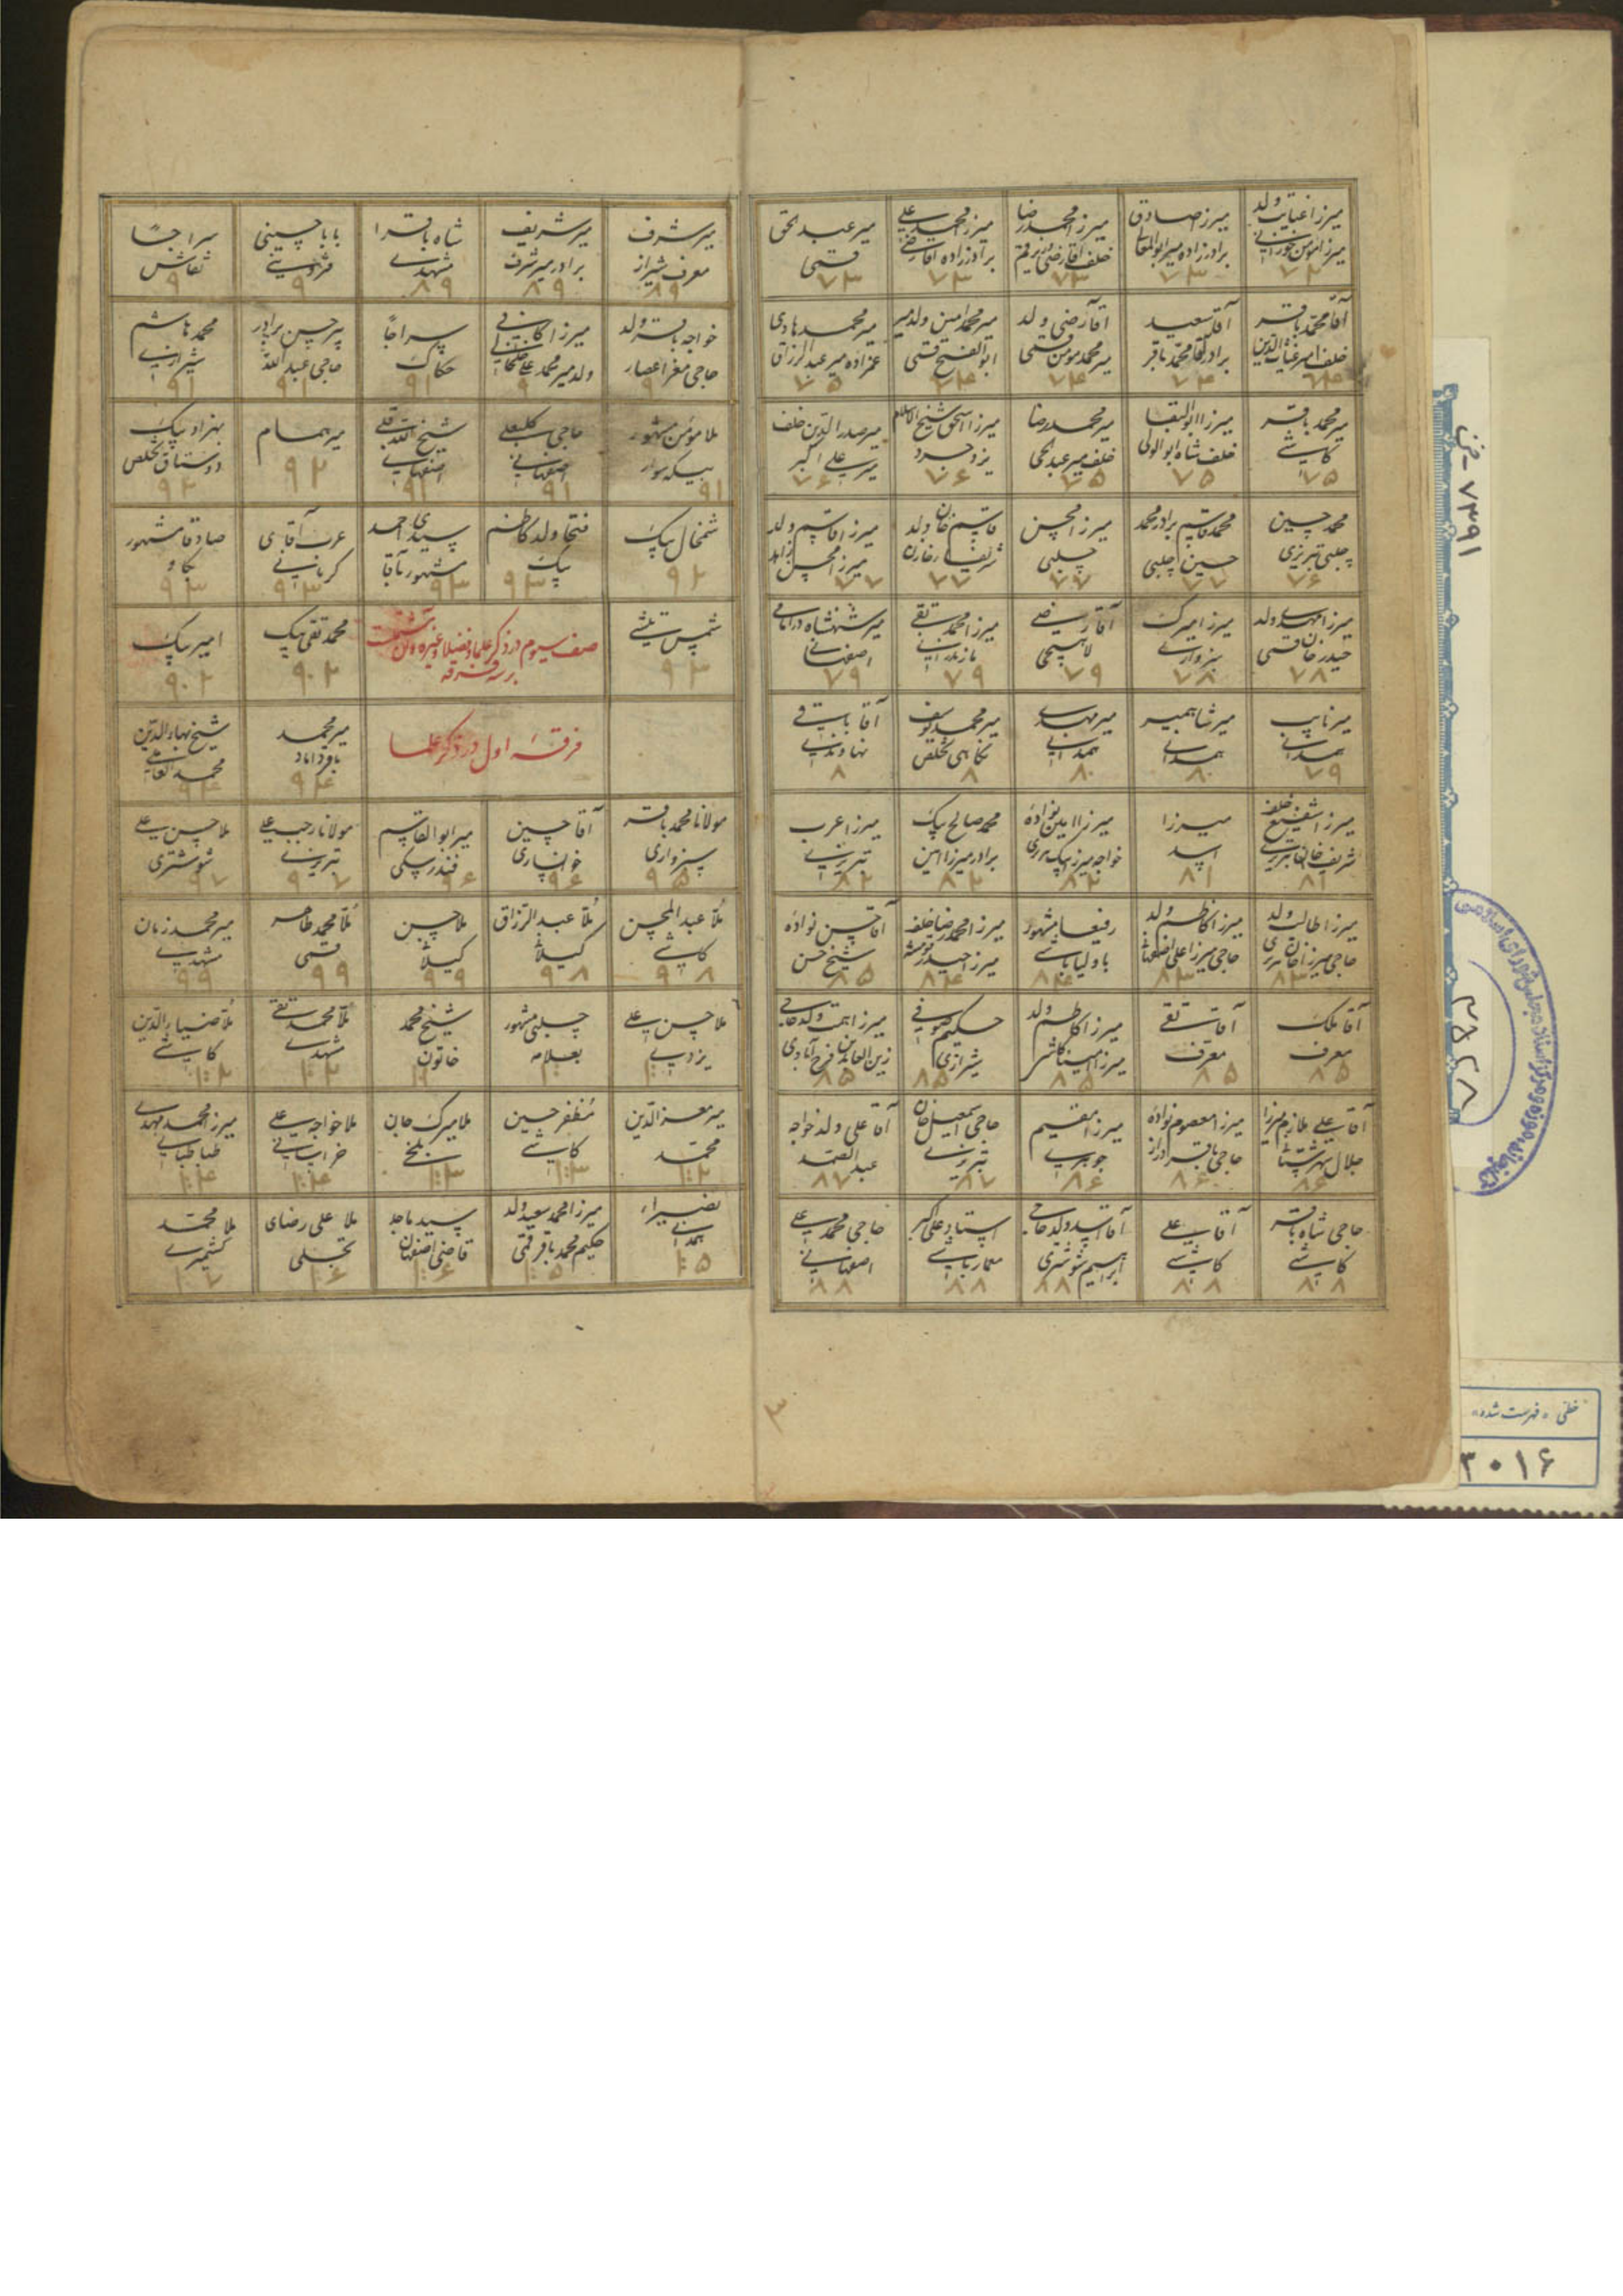 میرزا عنایت ولد
میرزا مومن خوزانی
۷۲
میرزا صادق
برادرزاده میر ابوالمعالی
۷۳
میرزا محمد رضا
خلف آقا رضی
۷۳
میرزا محمد علی
برادرزاده آقا رضی
۷۳
میر عبدالحق
قمی
۷۳
آقا محمد باقر
خلف امیر غیاث الدین
۷۴
آقا سعید
برادر آقا محمد باقر
۷۴
آقا رضی ولد
میر محمد مومن قمی
۷۴
میر محمد امین ولد میر
ابوالفتح قمی
۷۴
میر محمد هادی
عمزاده میر عبدالرزاق
۷۵
میر محمد باقر
کاشی
۷۵
میرزا ابوالبقا
خلف شاه ابوالولی
۷۵
میر محمد رضا
خلف میر عبدالحی
۷۵
میرزا اسحق شیخ الاسلام
یزدجرد
۷۶
میر صدرالدین خلف
میر علی اکبر
۷۶
محمد حسین
چلبی تبریزی
۷۶
محمد قاسم برادر محمد
حسین چلبی
۷۷
میرزا محسن
چلبی
۷۷
قاسم خان ولد
۷۷
میرزا قاسم ولد
میرزا محسن زاهد
۷۷
میرزا مهدی ولد
حیدر خان قمی
۷۸
میرزا میرک
سبزواری
۷۸
آقا رضی
لاهیجی
۷۹
میرزا محمد تقی
مازندرانی
۷۹
میر شهنشاه
اصفهانی
۷۹
میر نایب
همدانی
۷۹
میر شاهمیر
همدانی
۸۰
میر مهدی
همدانی
۸۰
میر محمد یوسف
نکاهی تخلص
۸
آقا باقی
نهاوندی
۸
میرزا شفیع خلف
شریف خان تبریزی
۸۱
میرزا
اسد
۸۱
خواجه میرزا بیک
۸۲
محمد صالح بیک
برادر میرزا امین
۸۲
میرزا عرب
تبریزی
۸۲
میرزا طالب ولد
حاجی میرزا خان
۸۳
میرزا کاظم ولد
حاجی میرزا علی
۸۳
رفیعا مشهور
۸۴
میرزا محمد رضا خلف
میرزا حیدر
۸۴
آقا حسن نواده
شیخ حسن
۸۵
آقا ملک
معرف
۸۵
آقا تقی
معرف
۸۵
میرزا کاظم ولد
میرزا امینا کاشی
۸۵
حکیم صوفی
شیرازی
۸۵
میرزا همت ولد حاجی
زین العابدین فرح آبادی
۸۵
آقا علی ملازم میرزا
جلال شهرستانی
۸۶
میرزا معصوم نواده
حاجی باقر
۸۶
میرزا مقیم
جوهری
۸۶
حاجی اسمعیل خان
تبریزی
۸۷
آقا علی ولد خواجه
عبدالصمد
۸۷
حاجی شاه باقر
کاشی
۸۸
آقا علی
کاشی
۸۸
آقا اسد ولد حاجی
ابراهیم شوشتری
۸۸
استاد علی اکبر
معمارباشی
۸۸
حاجی محمد علی
اصفهانی
۸۸
۳
میر شرف
معرف شیراز
۸۹
میر شریف
برادر میر شرف
۸۹
شاه باقرا
مشهدی
۸۹
بابا حسینی
قزوینی
۹
سراجا
نقاش
۹
خواجه باقر ولد
حاجی مغز عصار
۹
میرزا کافی
ولد میر محمد علی
۹
سراجا
حکاک
۹۱
پیر حسن برادر
حاجی عبدالله
۹۱
محمد هاشم
شیرازی
۹۱
ملا مومن مشهور
بیکه سوار
۹۱
حاجی کلبعلی
اصفهانی
۹۱
شیخ الله قلی
اصفهانی
۹۱
میر همام
۹۲
بهزاد بیک
دوستاق تخلص
۹۲
شمخال بیک
۹۲
فتحا ولد کاظم
بیک
۹۳
سیدی احمد
مشهور بآقا
۹۳
عرب آقای
کرمانی
۹۳
صادقا مشهور
بکاو
۹۳
شمس تیشی
۹۳
صف سیوم در ذکر علما و فضلا و غیره و آن مشتمل است
بر سه فرقه
محمد تقی بیک
۹۰۲
امیر بیک
۹۰۲
فرقهٔ اول در ذکر علما
میر محمد
باقر داماد
۹۴
شیخ بهاءالدین
محمد العاملی
۹۴
مولانا محمد باقر
سبزواری
۹۵
آقا حسین
خوانساری
۹۶
میر ابوالقاسم
فندرسکی
۹۶
مولانا رجبعلی
تبریزی
۹۷
ملا حسن علی
شوشتری
۹۷
ملا عبدالمحسن
کاشی
۹۸
ملا عبدالرزاق
گیلانی
۹۸
ملا حسن
گیلانی
۹۹
ملا محمد طاهر
قمی
۹۹
میر محمد زمان
مشهدی
۹۹
ملا حسن علی
یزدی
چلبی مشهور
بعلامه
شیخ محمد
خاتون
ملا محمد تقی
مشهدی
۱۰۲
ملا ضیاءالدین
کاشی
۱۰۲
میر معزالدین
محمد
۱۰۲
مظفر حسین
کاشی
۱۰۳
ملا میرک جان
بلخی
۱۰۳
ملا خواجه علی
خراسانی
۱۰۴
میرزا محمد مهدی
طباطبایی
۱۰۴
نصیراء
همدانی
۱۰۵
میرزا محمد سعید ولد
حکیم محمد باقر قمی
۱۰۵
سید ماجد
قاضی اصفهان
۱۰۶
ملا علی رضای
تجلی
۱۰۶
ملا محمد
کشمیری
۱۰۷
۷۳۹۱ - ض
۳۸۲۸
خطی «فهرست شده»
۳۰۱۶